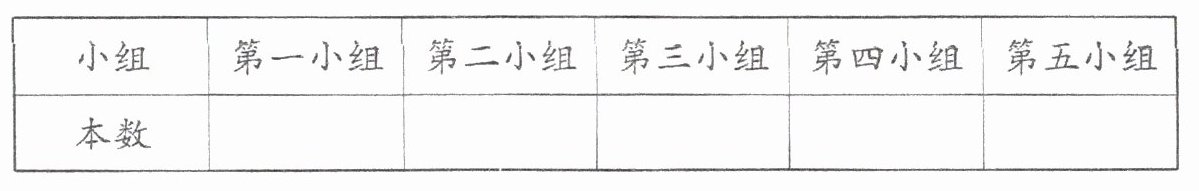 小组 第一小组 第二小组 第三小组 第四小组 第五小组
本数